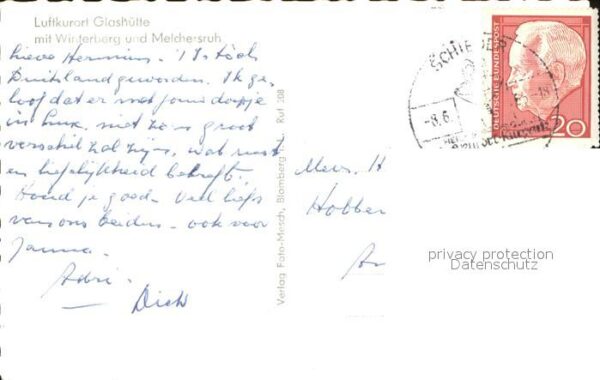 Luftkurort Glashütte
mit Winterberg und Melchersruh
Lieve Hermien. 't Is toch
Duitsland geworden. Ik ge-
loof dat er met jouw dorpje
in Lux. niet zo'n groot
verschil zal zijn, wat rust
en liefelijkheid betreft.
Houd je goed. Veel liefs
van ons beiden. ook voor
Janna.
Adri.
Dick
Verlag Foto-Mesch, Blomberg Ruf 308
Mevr. H
Hobbe
A
SCHIE
-8.6.
DEUTSCHE BUNDESPOST
20
privacy protection
Datenschutz